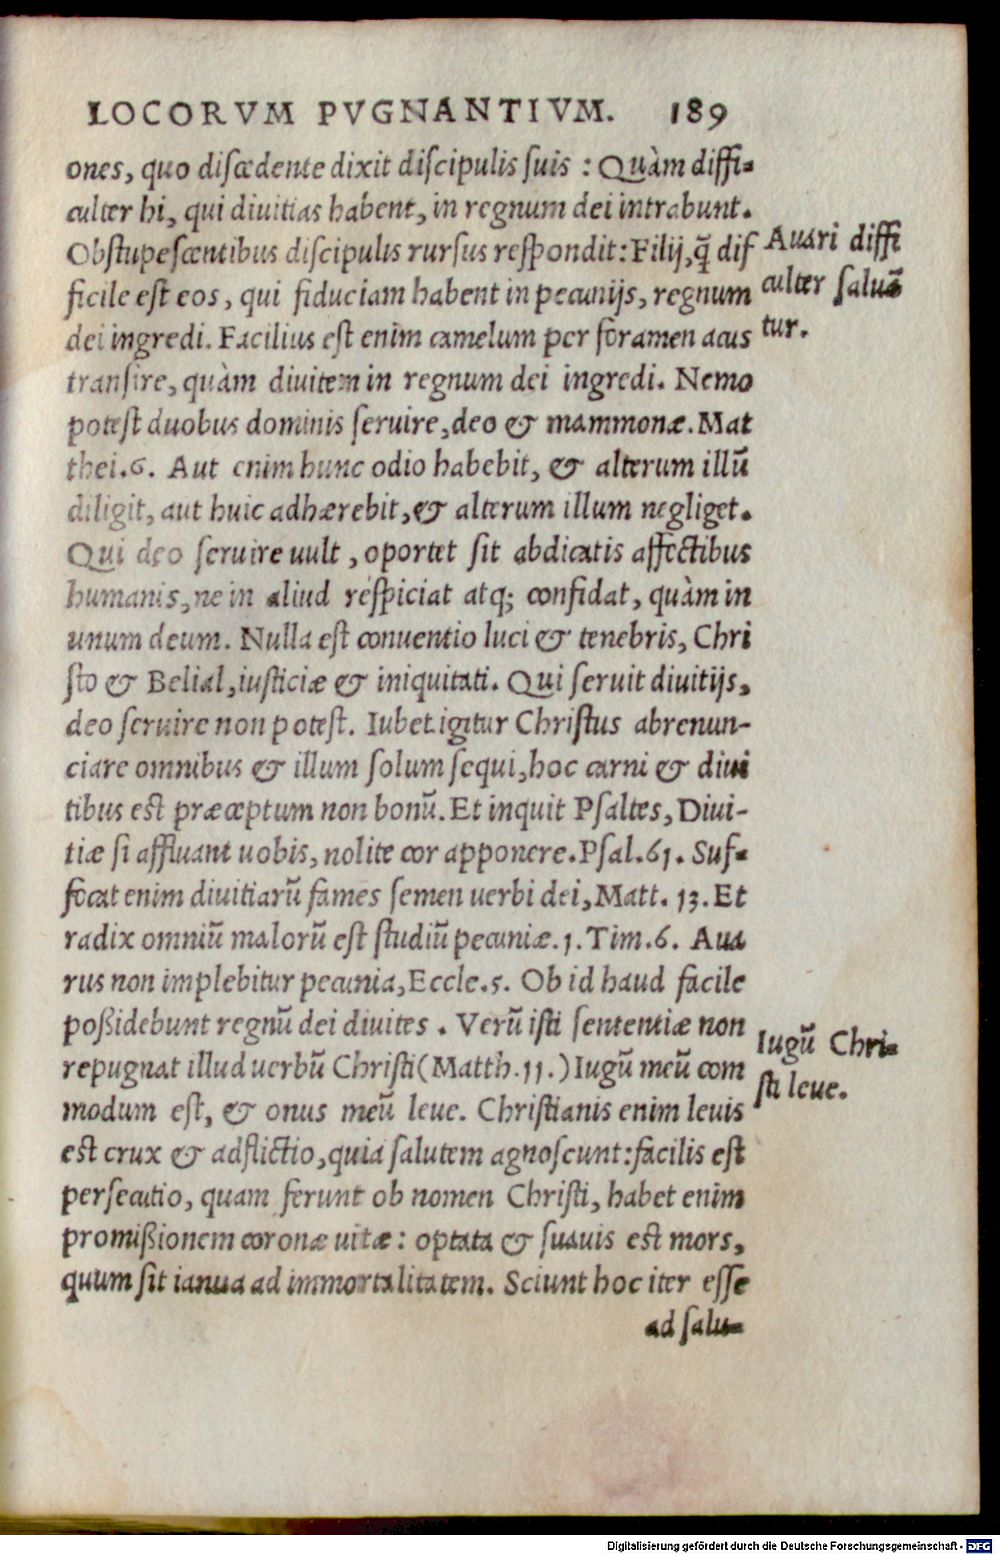 LOCORVM PVGNANTIVM. 189
ones, quo discedente dixit discipulis suis : Quàm diffi-
culter hi, qui diuitias habent, in regnum dei intrabunt.
Obstupescentibus discipulis rursus respondit: Filij, q̃ dif
ficile est eos, qui fiduciam habent in pecunijs, regnum
dei ingredi. Facilius est enim camelum per foramen acus
transire, quàm diuitem in regnum dei ingredi. Nemo
potest duobus dominis seruire, deo & mammonæ. Mat
thei.6. Aut enim hunc odio habebit, & alterum illũ
diligit, aut huic adhærebit, & alterum illum negliget.
Qui deo seruire uult, oportet sit abdicatis affectibus
humanis, ne in aliud respiciat atq; confidat, quàm in
unum deum. Nulla est conuentio luci & tenebris, Chri
sto & Belial, iusticiæ & iniquitati. Qui seruit diuitijs,
deo seruire non potest. Iubet igitur Christus abrenun-
ciare omnibus & illum solum sequi, hoc carni & diui
tibus est præceptum non bonũ. Et inquit Psaltes, Diui-
tiæ si affluant uobis, nolite cor apponere. Psal.61. Suf-
focat enim diuitiarũ fames semen uerbi dei, Matt. 13. Et
radix omniũ malorũ est studiũ pecuniæ. 1. Tim.6. Aua
rus non implebitur pecunia, Eccle.5. Ob id haud facile
poßidebunt regnũ dei diuites . Verũ isti sententiæ non
repugnat illud uerbũ Christi (Matth.11.) Iugũ meũ com
modum est, & onus meũ leue. Christianis enim leuis
est crux & adflictio, quia salutem agnoscunt: facilis est
persecutio, quam ferunt ob nomen Christi, habet enim
promißionem coronæ uitæ: optata & suauis est mors,
quum sit ianua ad immortalitatem. Sciunt hoc iter esse
ad salu-
Auari diffi
culter saluã
tur.
Iugũ Chri-
sti leue.
Digitalisierung gefördert durch die Deutsche Forschungsgemeinschaft - DFG